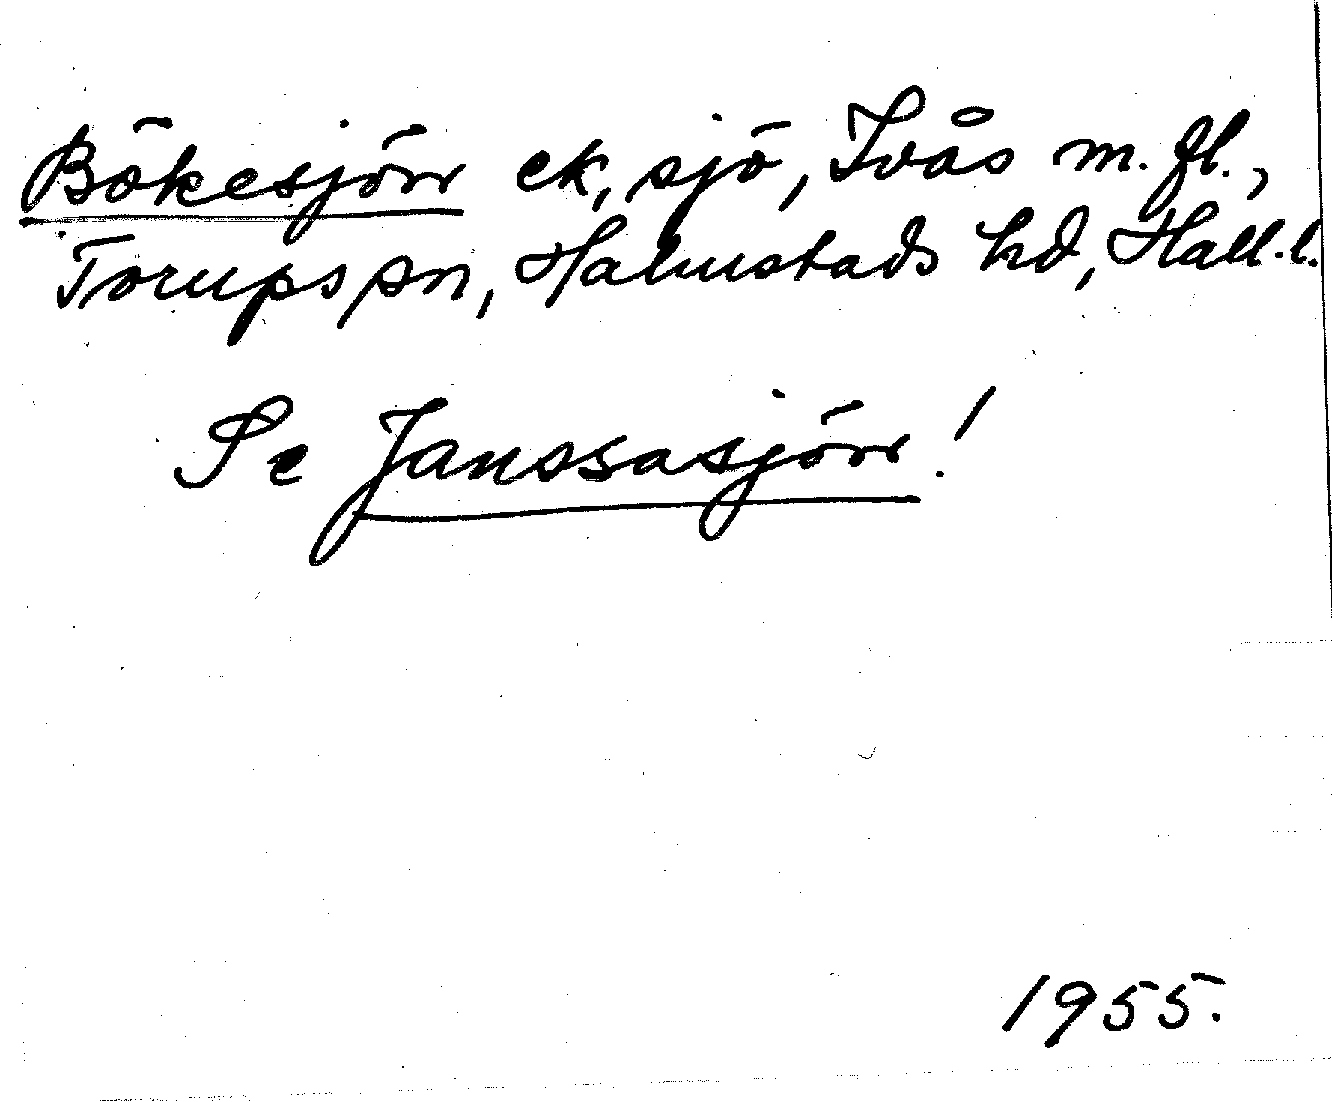 Bökesjön ek, sjö, Ivås m. fl.,
Torups sn, Halmstads hd, Hall.l.
Se Janssasjön!
1955.